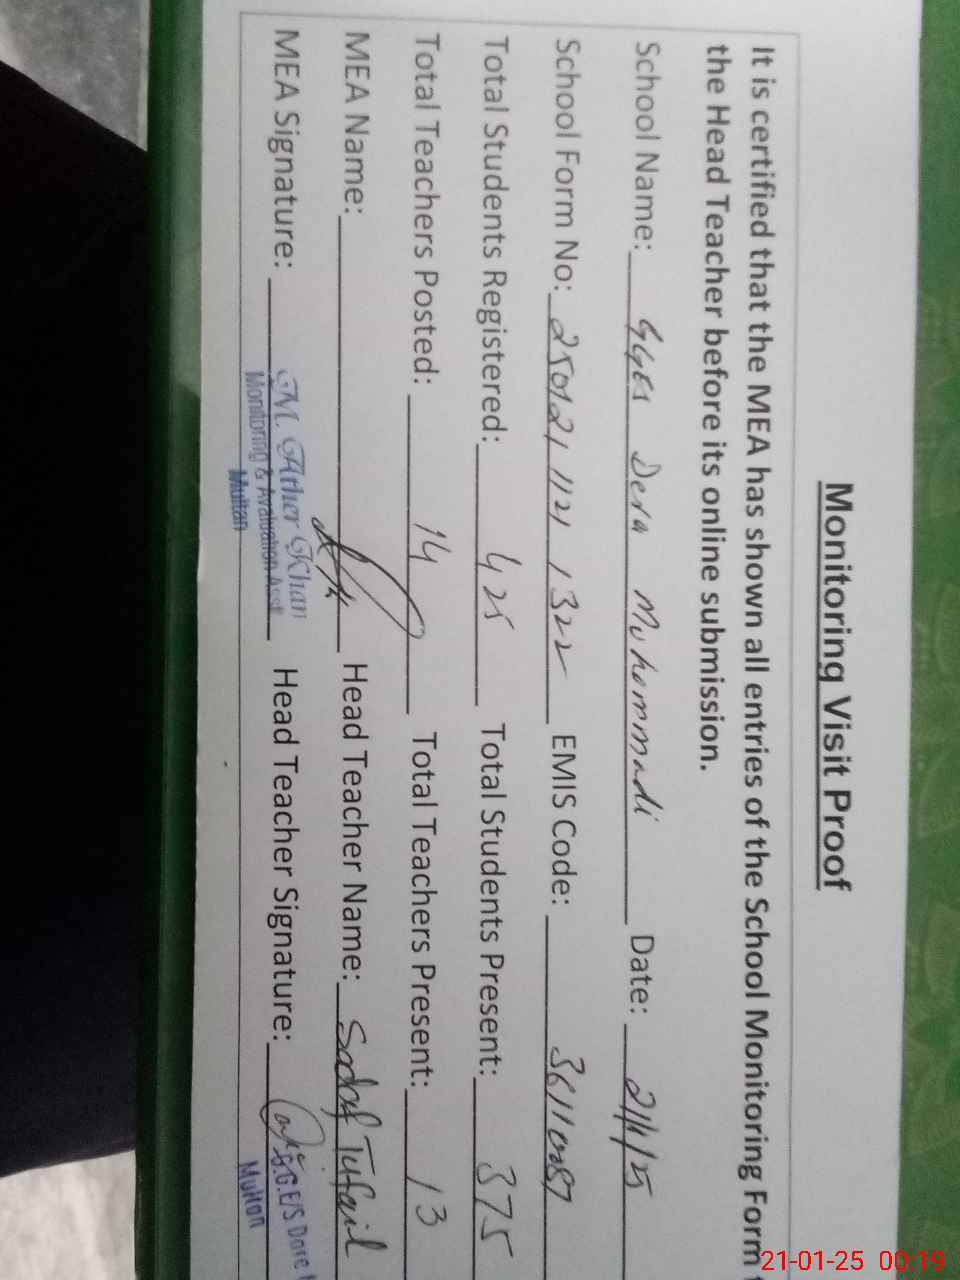 Monitoring Visit Proof
It is certified that the MEA has shown all entries of the School Monitoring Form
the Head Teacher before its online submission.
School Name: GGES Dera Muhammadi Date: 21/1/25
School Form No: 250121 1121 1322 EMIS Code: 36110087
Total Students Registered: 425 Total Students Present: 375
Total Teachers Posted: 14 Total Teachers Present: 13
MEA Name: Head Teacher Name: Sadaf Tufail
MEA Signature: M. Ather Khan Head Teacher Signature:
Monitoring & Avaluation Asst G.G.E/S Dare
Multan Multan
21-01-25 00:19